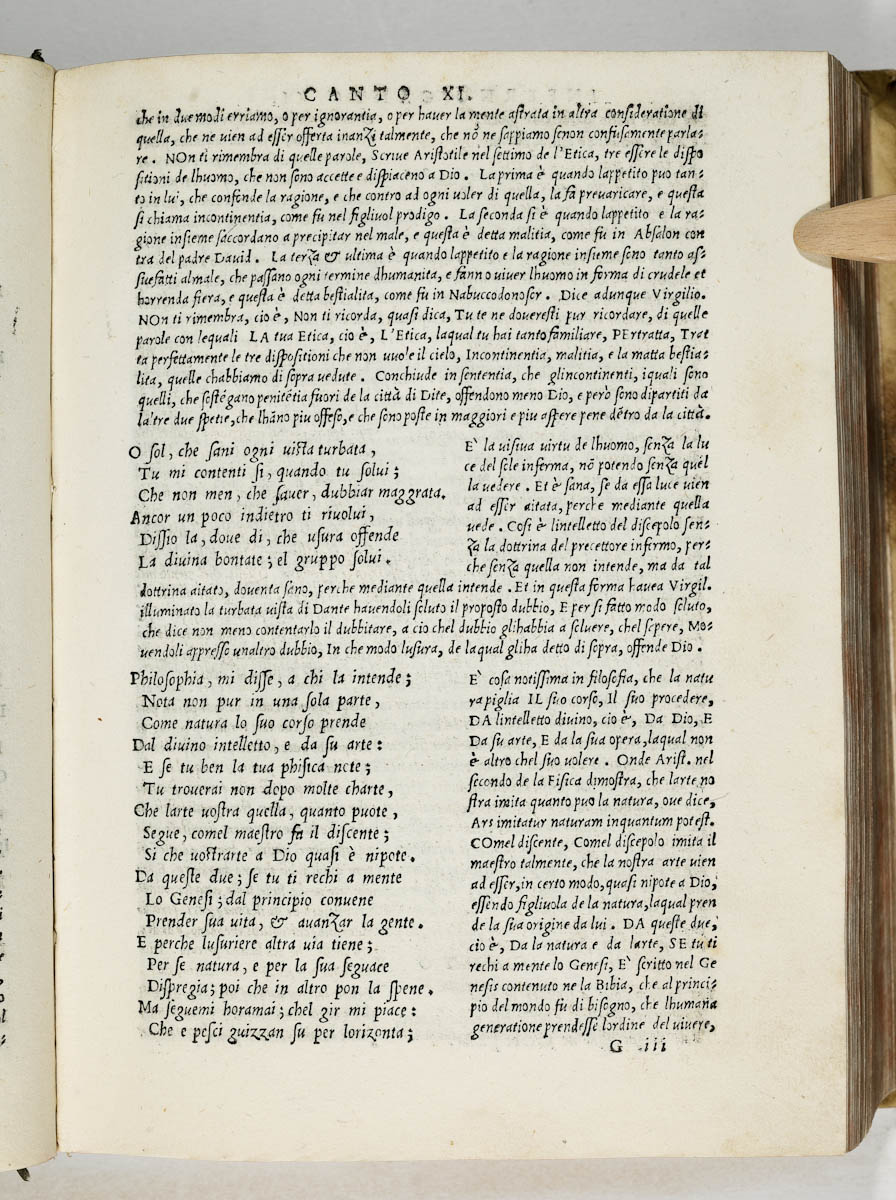 CANTO XI.
che in due modi erriamo, o per ignorantia, o per hauer la mente astrata in altra consideratione di
quella, che ne uien ad esser offerta inanzi talmente, che nõ ne sappiamo senon confusamente parla-
re. NOn ti rimembra di quelle parole, Scriue Aristotile nel settimo de l'Etica, tre essere le dispo
sitioni de lhuomo, che non sono accette e dispiaceno a Dio. La prima è quando lappetito puo tan-
to in lui, che confonde la ragione, e che contro ad ogni uoler di quella, la fa preuaricare, e questa
si chiama incontinentia, come fu nel figliuol prodigo. La seconda si è quando lappetito e la ra-
gione insieme saccordano a precipitar nel male, e questa è detta malitia, come fu in Absalon con
tra del padre Dauid. La terza & ultima è quando lappetito e la ragione insieme sono tanto as-
suefatti al male, che passano ogni termine dhumanita, e fanno uiuer lhuomo in forma di crudele et
horrenda fiera, e questa è detta bestialita, come fu in Nabuccodonosor. Dice adunque Virgilio.
NOn ti rimembra, cio è, Non ti ricorda, quasi dica, Tu te ne doueresti pur ricordare, di quelle
parole con lequali LA tua Etica, cio è, L'Etica, laqual tu hai tanto familiare, PErtratta, Trat
ta perfettamente le tre dispositioni che non uuole il cielo, Incontinentia, malitia, e la matta bestia-
lita, quelle chabbiamo di sopra uedute. Conchiude in sententia, che glincontinenti, iquali sono
quelli, che sostẽgano penitẽtia fuori de la città di Dite, offendono meno Dio, e però sono dipartiti da
laltre due spetie, che lhãno piu offeso, e che sono poste in maggiori e piu aspere pene dẽtro da la città.
O sol, che sani ogni uista turbata,
Tu mi contenti si, quando tu solui;
Che non men, che sauer, dubbiar maggrata.
Ancor un poco indietro ti riuolui,
Dissio la, doue di, che usura offende
La diuina bontate; el gruppo solui.
E` la uisiua uirtu de lhuomo, senza la lu
ce del sole inferma, nõ potendo senza quel
la uedere. Et è sana, se da essa luce uien
ad esser aitata, perche mediante quella
uede. Cosi è lintelletto del discepolo sen-
za la dottrina del precettore infermo, per-
che senza quella non intende, ma da tal
dottrina aitato, douenta sano, perche mediante quella intende. Et in questa forma hauea Virgil.
illuminato la turbata uista di Dante hauendoli soluto il proposto dubbio, E per si fatto modo soluto,
che dice non meno contentarlo il dubbitare, a cio chel dubbio glihabbia a soluere, chel sapere, Mo-
uendoli appresso unaltro dubbio, In che modo lusura, de laqual gliha detto di sopra, offende Dio.
Philosophia, mi disse, a chi la intende;
Nota non pur in una sola parte,
Come natura lo suo corso prende
Dal diuino intelletto, e da su arte:
E se tu ben la tua phisica note;
Tu trouerai non dopo molte charte,
Che larte uostra quella, quanto puote,
Segue, comel maestro fa il discente;
Si che uostrarte a Dio quasi è nipote.
Da queste due; se tu ti rechi a mente
Lo Genesi; dal principio conuene
Prender sua uita, & auanzar la gente.
E perche lusuriere altra uia tiene;
Per se natura, e per la sua seguace
Dispregia; poi che in altro pon la spene.
Ma seguemi horamai; chel gir mi piace:
Che e pesci guizzan su per lorizonta;
E` cosa notissima in filosofia, che la natu
ra piglia IL suo corso, Il suo procedere,
DA lintelletto diuino, cio è, Da Dio, E
Da su arte, E da la sua opera, laqual non
è altro chel suo uolere. Onde Arist. nel
secondo de la Fisica dimostra, che larte no
stra imita quanto puo la natura, oue dice,
Ars imitatur naturam inquantum potest.
COmel discente, Comel discepolo imita il
maestro talmente, che la nostra arte uien
ad esser, in certo modo, quasi nipote a Dio,
essendo figliuola de la natura, laqual pren
de la sua origine da lui. DA queste due,
cio è, Da la natura e da larte, SE tu ti
rechi a mente lo Genesi, E` scritto nel Ge
nesis contenuto ne la Bibia, che al princi-
pio del mondo fu di bisogno, che lhumana
generatione prendesse lordine del uiuere,
G iii